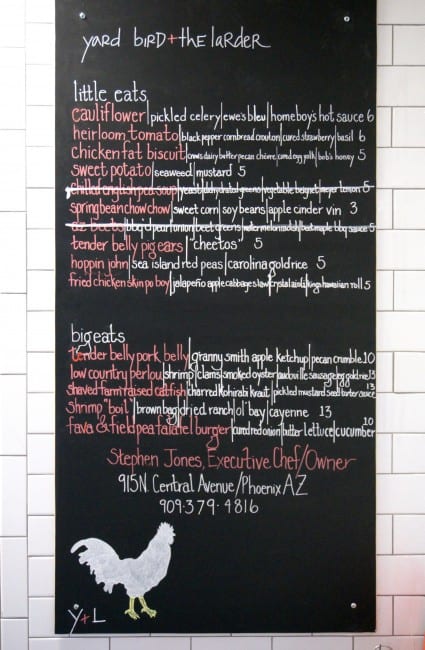 yard bird + the larder
little eats
cauliflower | pickled celery | ewe's bleu | homeboy's hot sauce 6
heirloom tomato | black pepper cornbread crouton | cured strawberry | basil 6
chicken fat biscuit | dairy butter | pecan chevre | cured egg yolk | bob's honey 5
sweet potato | seaweed mustard 5
chilled english pea soup | greens | vegetable beignet | meyer lemon 5
spring bean chow chow | sweet corn | soy beans | apple cinder vin 3
az beets | bbq'd pear | onion | beet greens | bbq sauce 5
tender belly pig ears | cheetos 5
hoppin john | sea island red peas | carolina gold rice 5
fried chicken skin po boy | jalapeño apple cabbage slaw | crystal aioli | kings hawaiian roll 5
big eats
tender belly pork belly | granny smith apple ketchup | pecan crumble 10
low country perlou | shrimp | clams | smoked oyster | andouille sausage | egg | gold rice 13
shaved farm raised catfish | charred kohlrabi kraut | pickled mustard seed tarter sauce 13
shrimp "boil" | brown bag | dried ranch | ol' bay cayenne 13
fava & field pea falafel burger | cured red onion | bitter lettuce | cucumber 10
Stephen Jones, Executive Chef/Owner
915 N. Central Avenue/Phoenix AZ
909·379·4816
Y+L